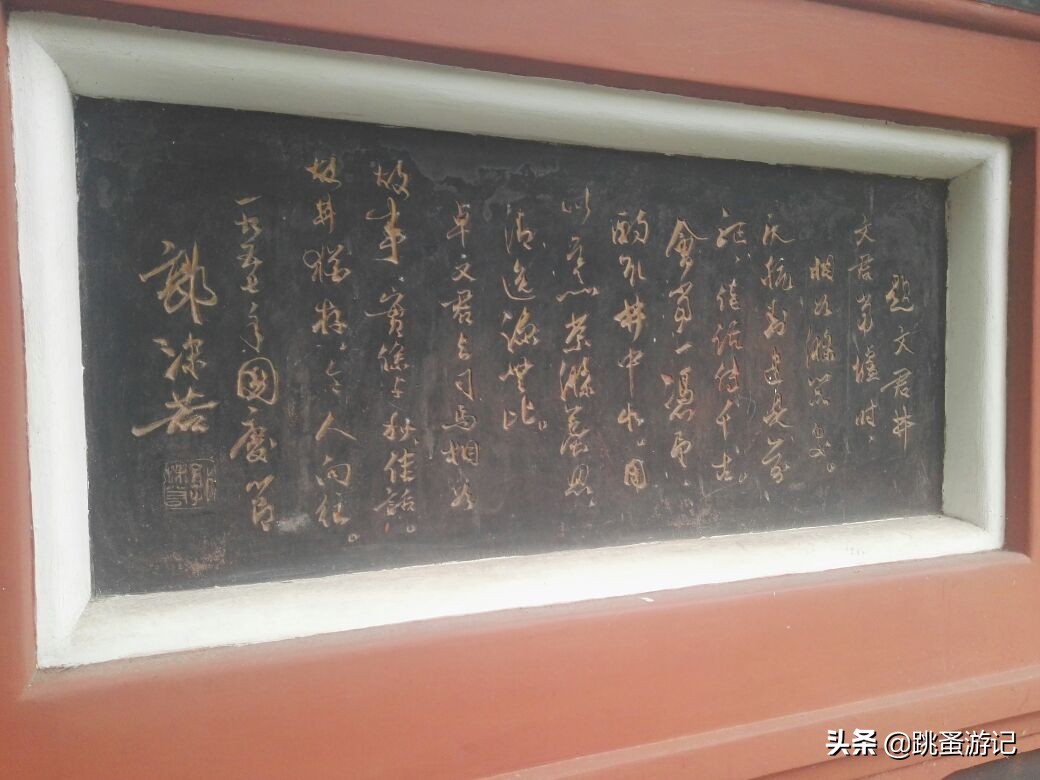 题文君井
文君当壚时，
相如滌器处。
反抗封建是前
驱，佳话传千古。
會当一凭吊，
酌取井中水。用
以烹茶滌尘思，
清逸凉無比。
卓文君与司馬相如
故事，实係千秋佳話。
故井犹存，令人向往。
一九五七年國慶节
郭沫若
头条 @跳蚤游记